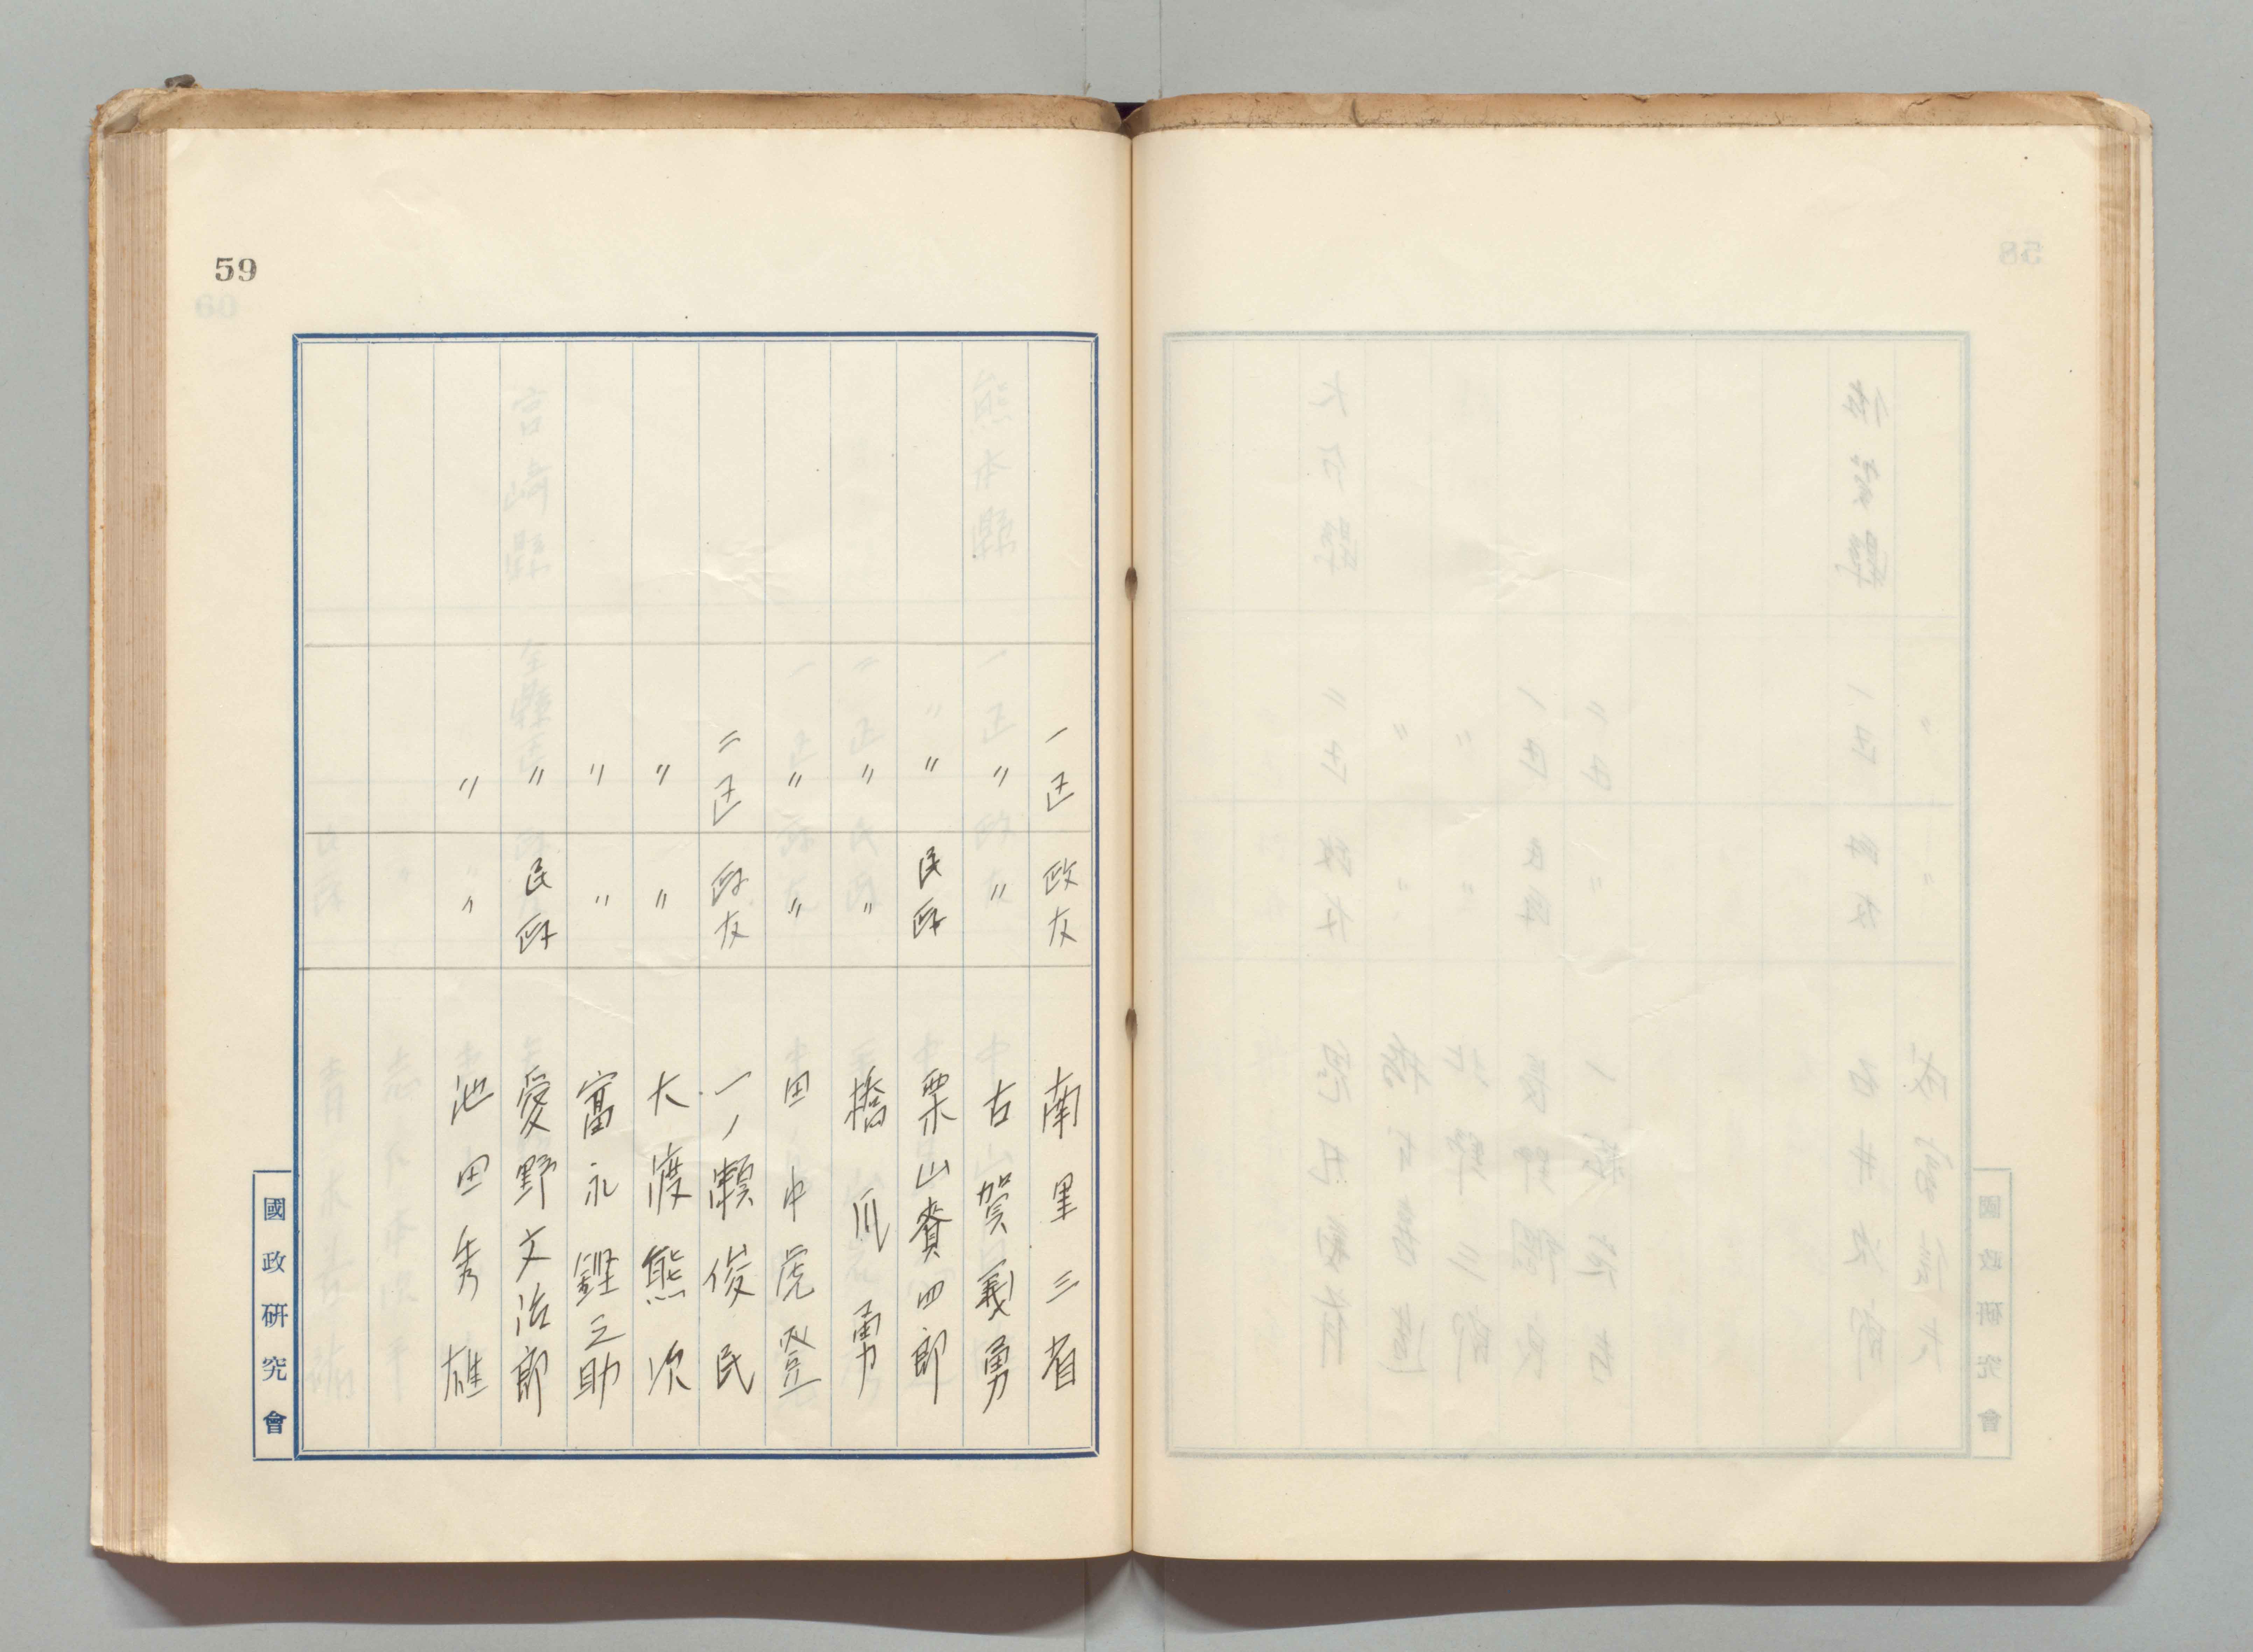 59
一区 政友 南里三省
〃 〃 古賀義勇
〃 民政 栗山賚四郎
〃 〃 橋爪勇
〃 〃 田中虎登
二区 政友 一ノ瀬俊民
〃 〃 大渡熊次
〃 〃 富永鏗之助
〃 民政 愛野文治郎
〃 〃 池田秀雄
國政研究會